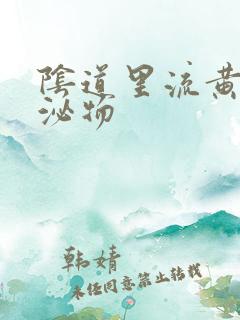 陰道里流黄
泌物
韩婧
未经同意禁止转载